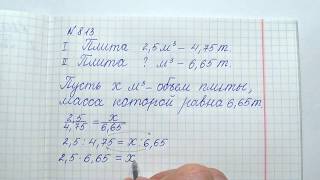 N 813
I Плита 2,5 м³ – 4,75 т.
II Плита ? м³ – 6,65 т.
Пусть x м³ – объем плиты,
масса которой равна 6,65 т
2,5/4,75 = x/6,65
2,5 : 4,75 = x : 6,65
2,5 · 6,65 = x